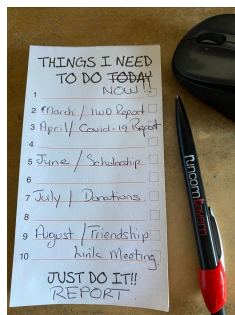 THINGS I NEED
TO DO TODAY
NOW!!
1
2 March / IWD Report
3 April / Covid-19 Report
4
5 June / Scholarship
6
7 July / Donations.
8
9 August / Friendship
10 Link Meeting.
JUST DO IT!!
REPORT.